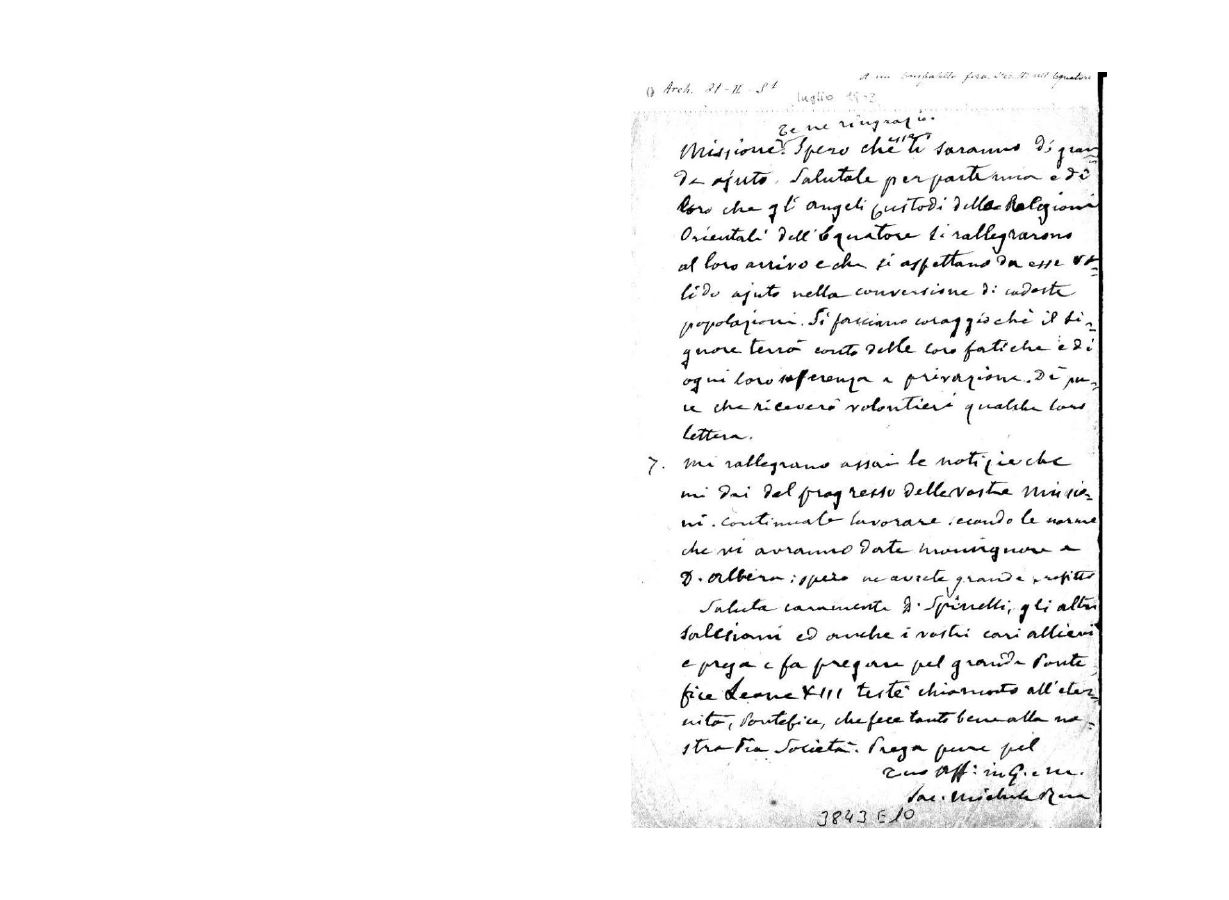 A un Confratello fora Direttore nell'Equatore
Arch. 21-II-81
luglio 1903
Te ne ringrazio.
Missione. Spero che esse ti saranno di gran=
de ajuto. Salutale per parte mia e di
loro che gli angeli custodi delle Religioni
Orientali dell'Equatore si rallegrarono
al loro arrivo e che si aspettano da esse va=
lido ajuto nella conversione di codeste
popolazioni. Si facciano coraggio chè il Si=
gnore terrà conto delle loro fatiche e di
ogni loro sofferenza e privazione. Di' pu=
re che riceverò volontieri qualche loro
lettera.
7. Mi rallegrano assai le notizie che
mi dai del progresso delle vostre missio=
ni. Continuate lavorare secondo le norme
che vi avranno date monsignore e
D. Albera: spero ne avrete grande profitto
Saluta caramente D. Spinelli, gli altri
Salesiani ed anche i vostri cari allievi
e prega e fa pregare pel grande Ponte
fice Leone XIII testè chiamato all'eter=
nità, Pontefice, che fece tanto bene alla no=
stra Pia Società. Prega pure pel
Tuo aff: in G. e M.
Sac. Michele Rua
3843 E10